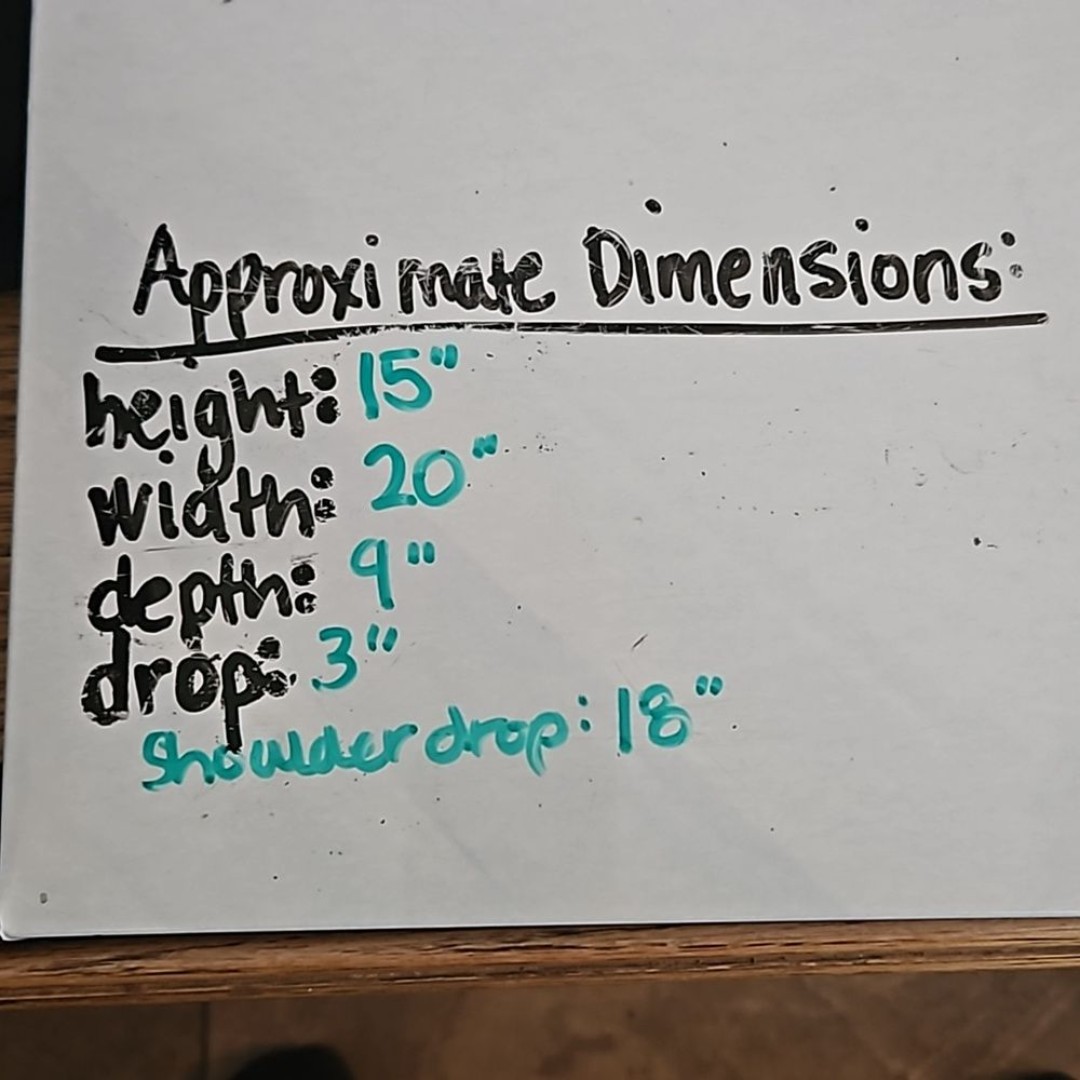 Approximate Dimensions:
height: 15"
width: 20"
depth: 9"
drop: 3"
Shoulder drop: 18"